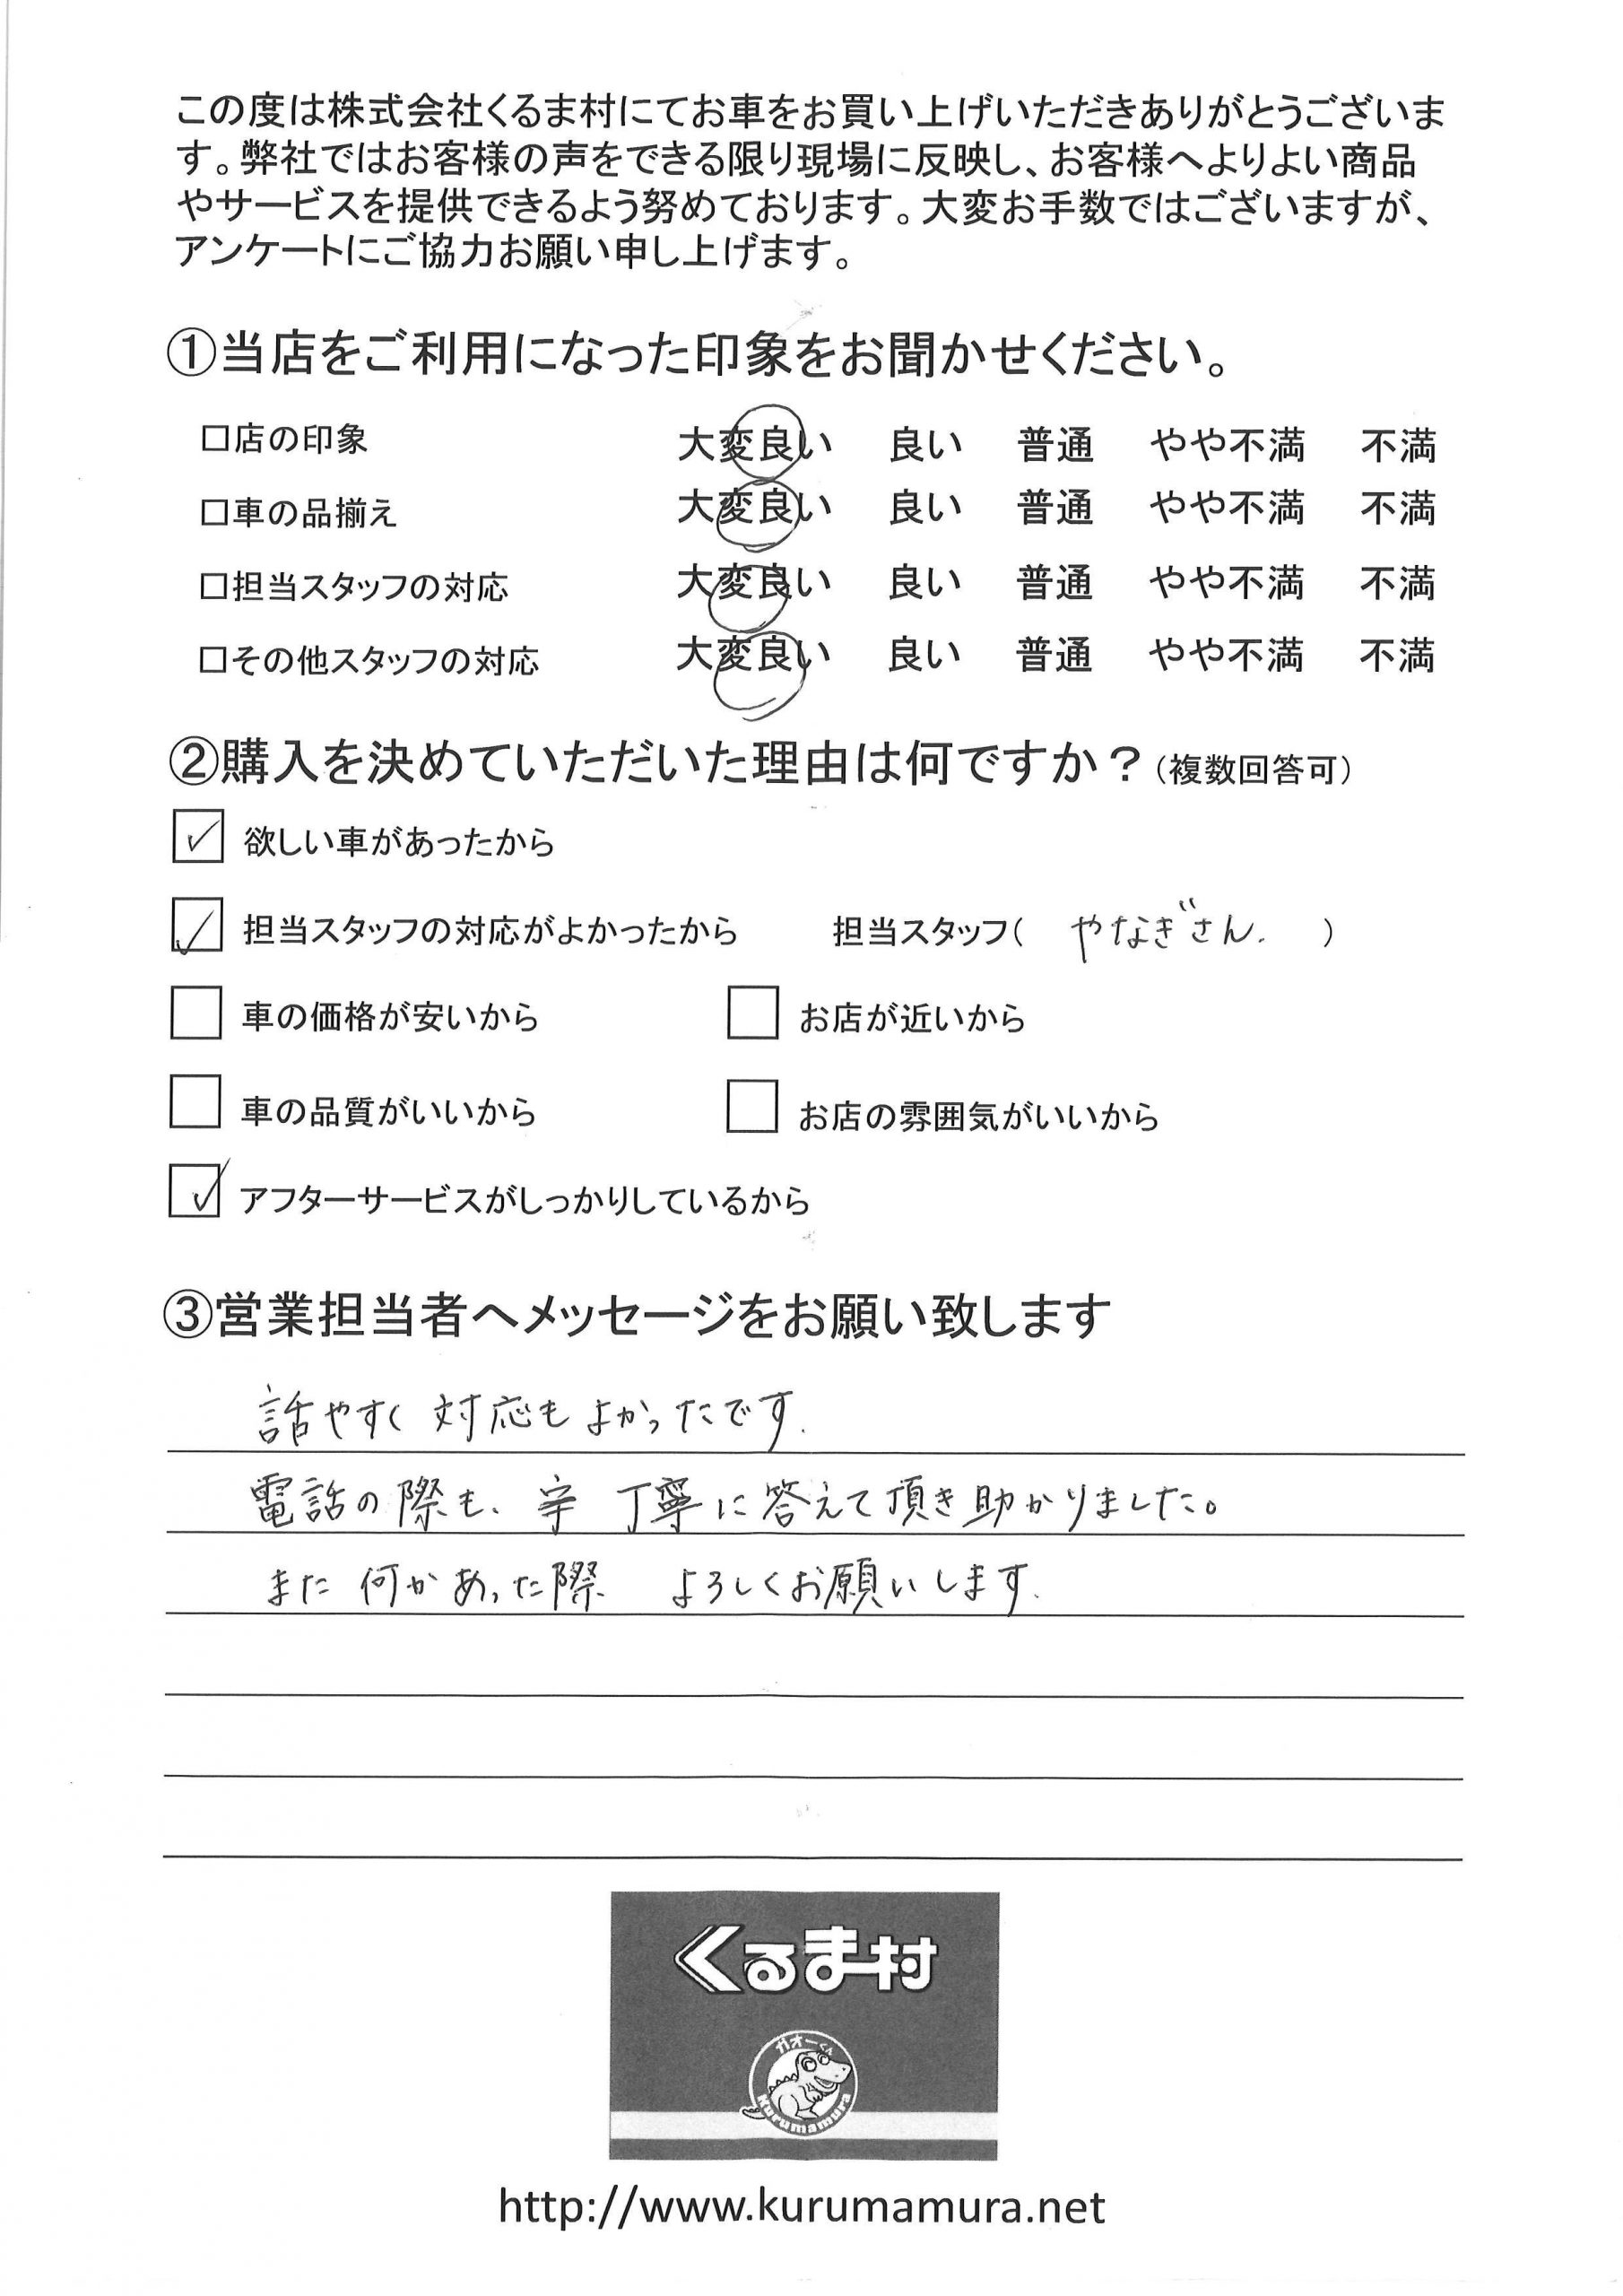 この度は株式会社くるま村にてお車をお買い上げいただきありがとうございま
す。弊社ではお客様の声をできる限り現場に反映し、お客様へよりよい商品
やサービスを提供できるよう努めております。大変お手数ではございますが、
アンケートにご協力お願い申し上げます。
①当店をご利用になった印象をお聞かせください。
□店の印象 大変良い 良い 普通 やや不満 不満
□車の品揃え 大変良い 良い 普通 やや不満 不満
□担当スタッフの対応 大変良い 良い 普通 やや不満 不満
□その他スタッフの対応 大変良い 良い 普通 やや不満 不満
②購入を決めていただいた理由は何ですか？（複数回答可）
☑ 欲しい車があったから
☑ 担当スタッフの対応がよかったから 担当スタッフ（ やなぎさん. ）
□ 車の価格が安いから □ お店が近いから
□ 車の品質がいいから □ お店の雰囲気がいいから
☑ アフターサービスがしっかりしているから
③営業担当者へメッセージをお願い致します
話やすく 対応もよかったです.
電話の際も、丁寧に答えて頂き助かりました。
また 何かあった際 よろしくお願いします.
くるま村
ガオーくん
Kurumamura
http://www.kurumamura.net